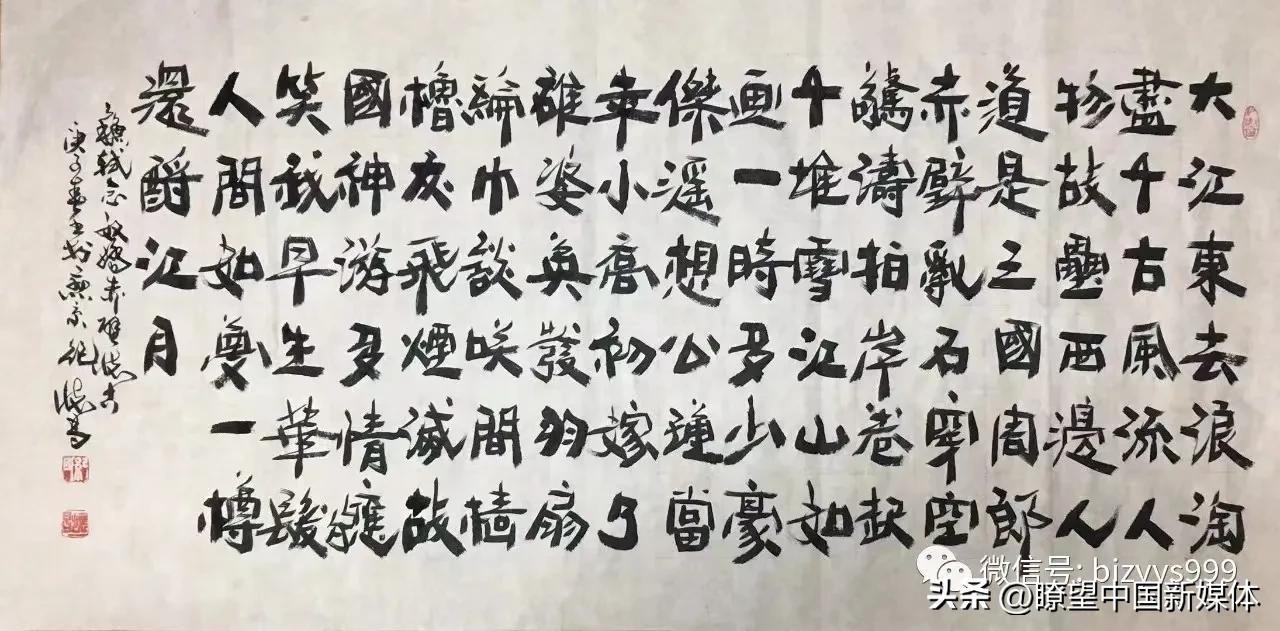 大江東去浪淘
盡千古風流人
物故壘西邊人
道是三國周郎
赤壁亂石穿空
驚濤拍岸卷起
千堆雪江山如
画一時多少豪
傑遥想公瑾當
年小喬初嫁了
雄姿英發羽扇
綸巾談咲間樯
櫓灰飛煙滅故
國神游多情應
笑我早生華髮
人間如夢一樽
還酹江月
蘇軾念奴嬌赤壁懷古
庚子春
微信号: bizvys999
头条 @瞭望中国新媒体